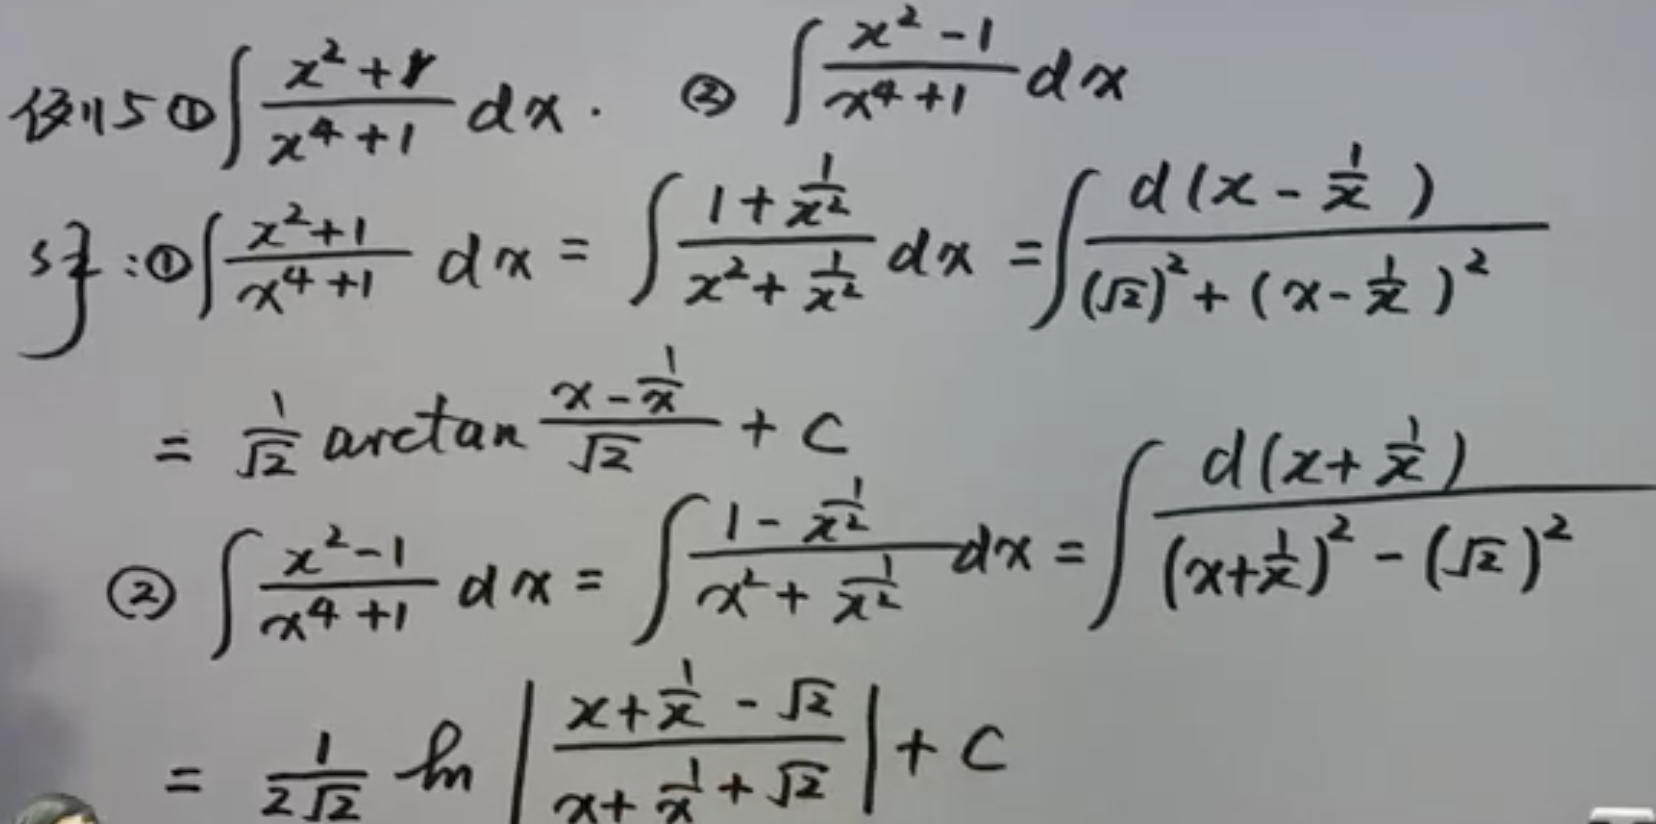 例5 ① ∫ (x²+1)/(x⁴+1) dx. ② ∫ (x²-1)/(x⁴+1) dx
解: ① ∫ (x²+1)/(x⁴+1) dx = ∫ (1+1/x²)/(x²+1/x²) dx = ∫ d(x-1/x)/((√2)²+(x-1/x)²)
= 1/√2 arctan (x-1/x)/√2 + C
② ∫ (x²-1)/(x⁴+1) dx = ∫ (1-1/x²)/(x²+1/x²) dx = ∫ d(x+1/x)/((x+1/x)²-(√2)²)
= 1/(2√2) ln |(x+1/x-√2)/(x+1/x+√2)| + C